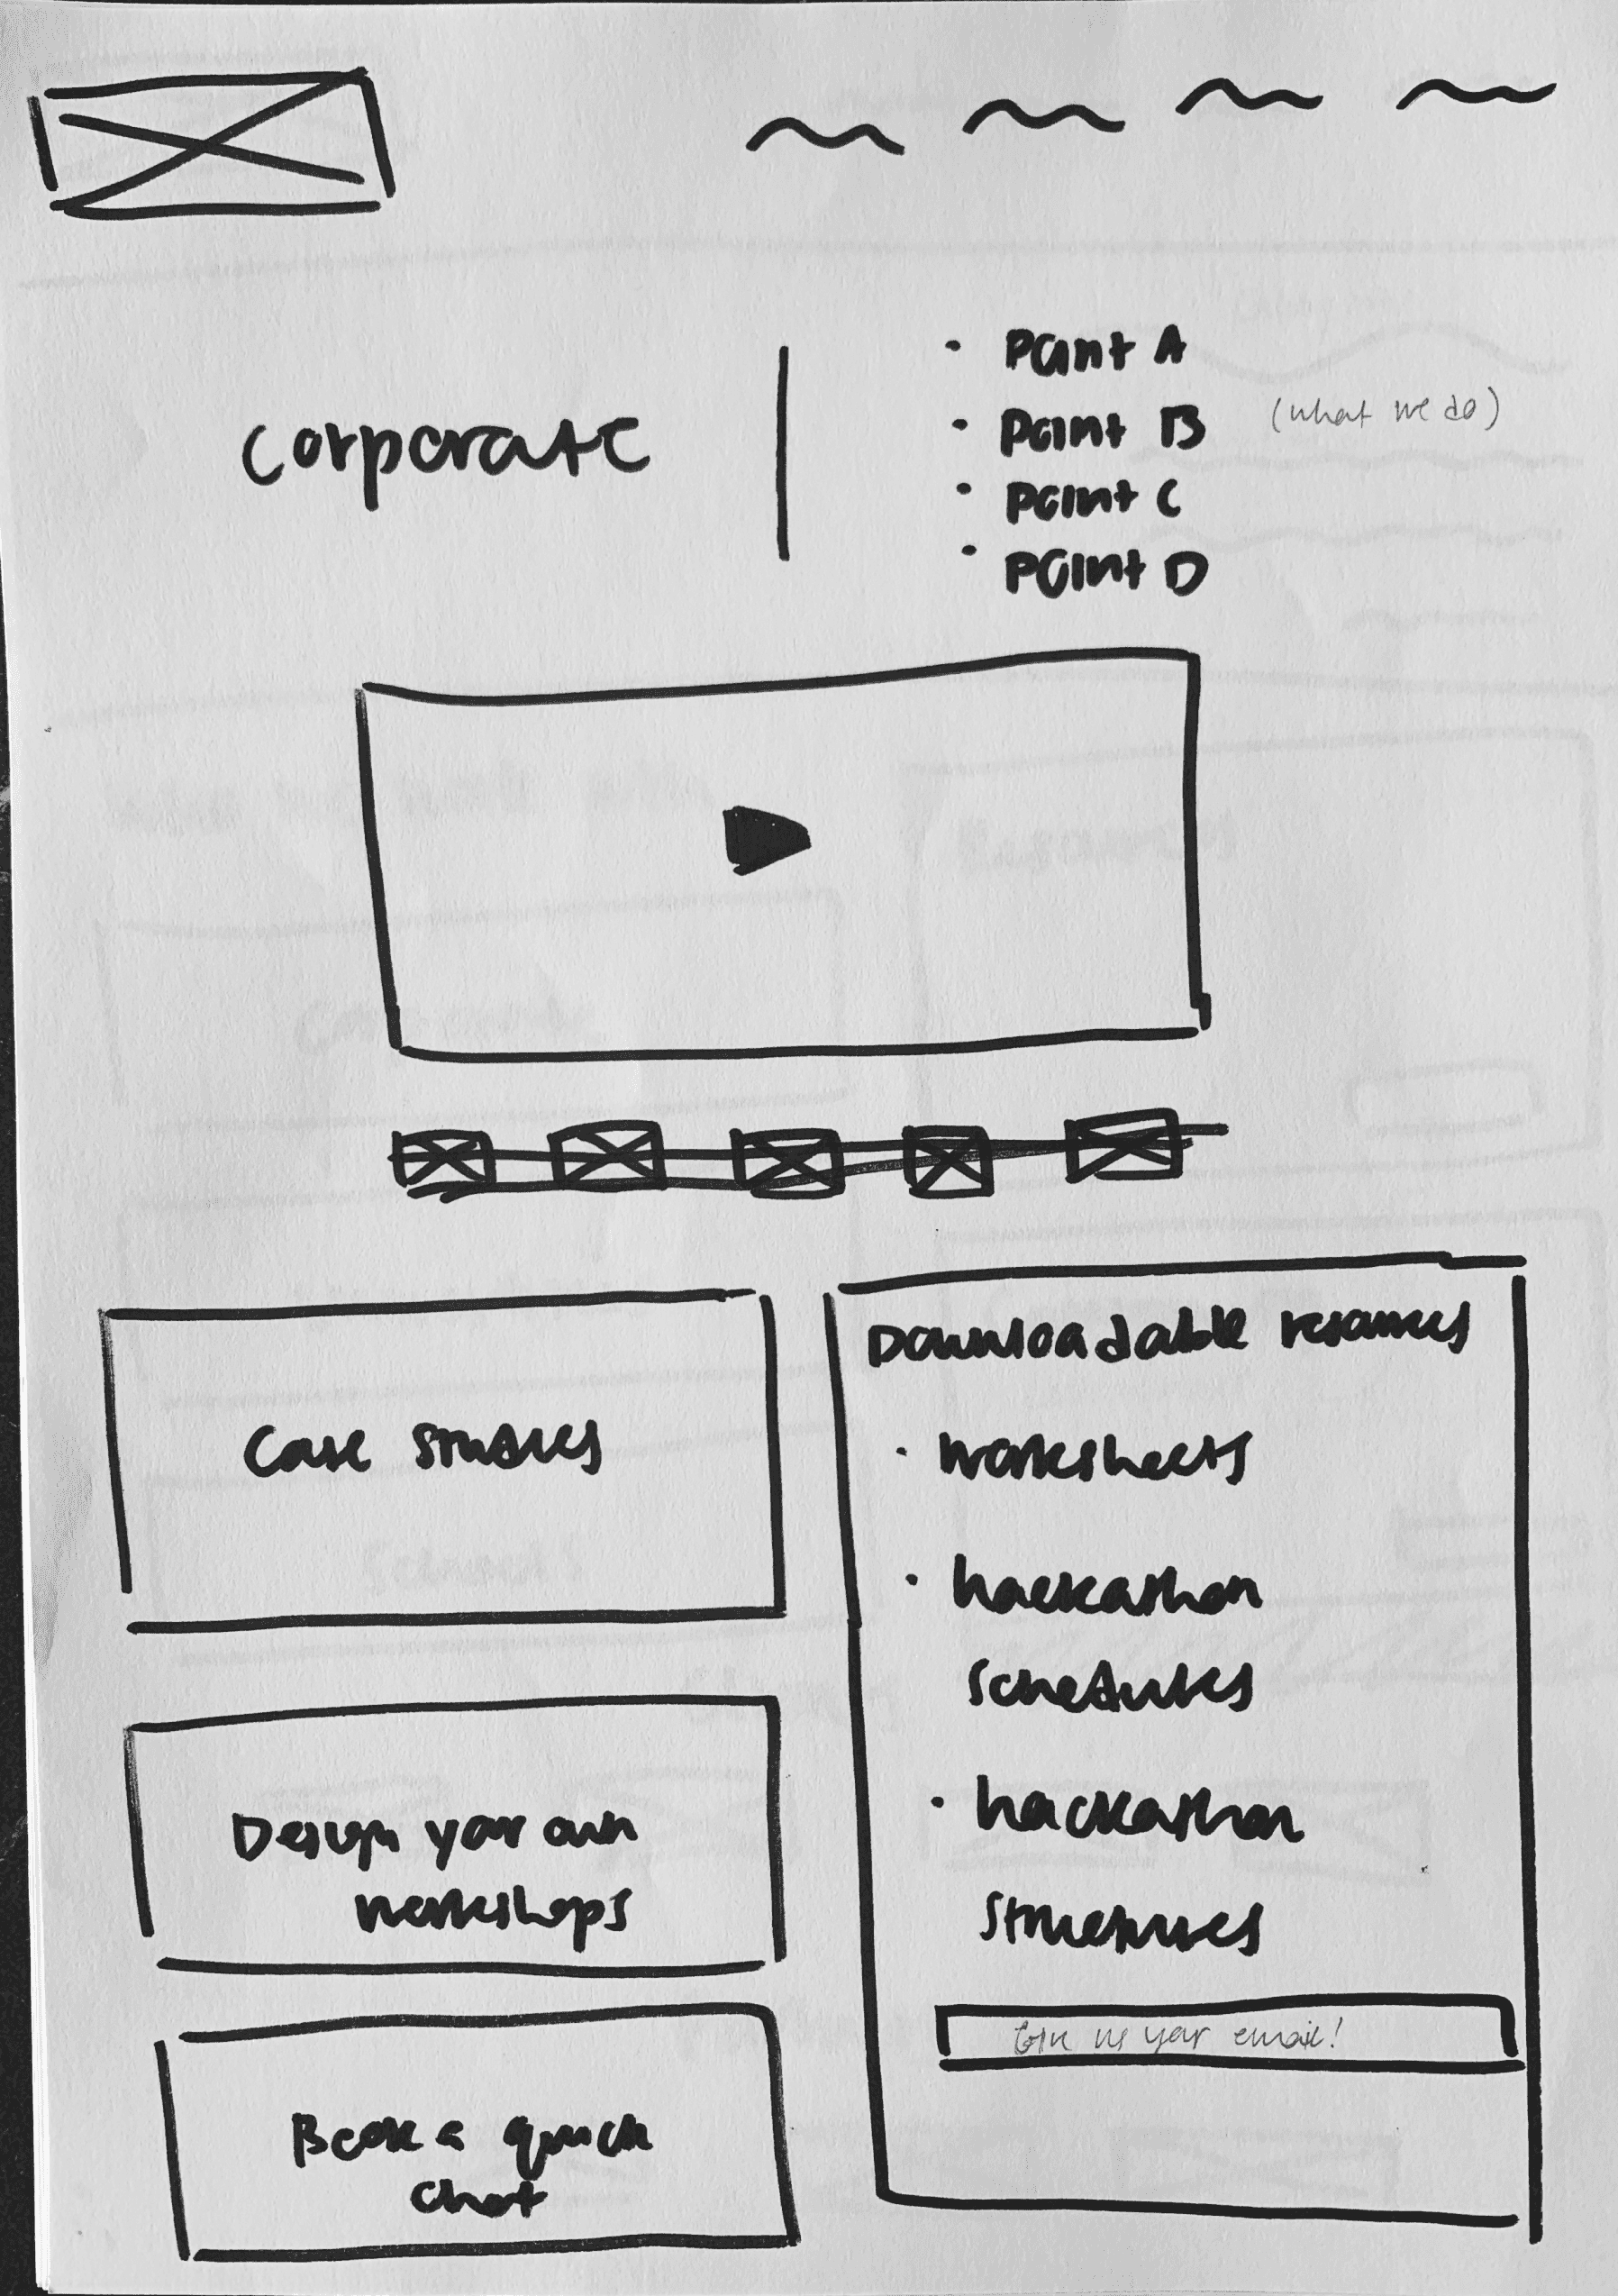 Corporate
• Point A
• Point B (what we do)
• Point C
• Point D
Case studies
Design your own
workshops
Book a quick
chat
Downloadable resources
• worksheets
• hackathon
schedules
• hackathon
structures
Give us your email!